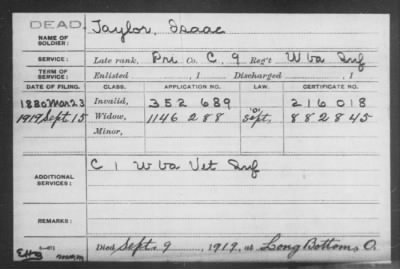 DEAD.
NAME OF SOLDIER: Taylor, Isaac
SERVICE: Late rank, Pri Co. C, 9 Reg't W Va Inf
TERM OF SERVICE: Enlisted , 1 Discharged , 1
DATE OF FILING. CLASS. APPLICATION NO. LAW. CERTIFICATE NO.
1880 Mar 23 Invalid, 352 689 216 018
1919 Sept 15 Widow, 1146 288 Sept. 882845
Minor,
ADDITIONAL SERVICES: C 1 W Va Vet Inf
REMARKS:
Died Sept. 9, 1919, at Long Bottom, O.